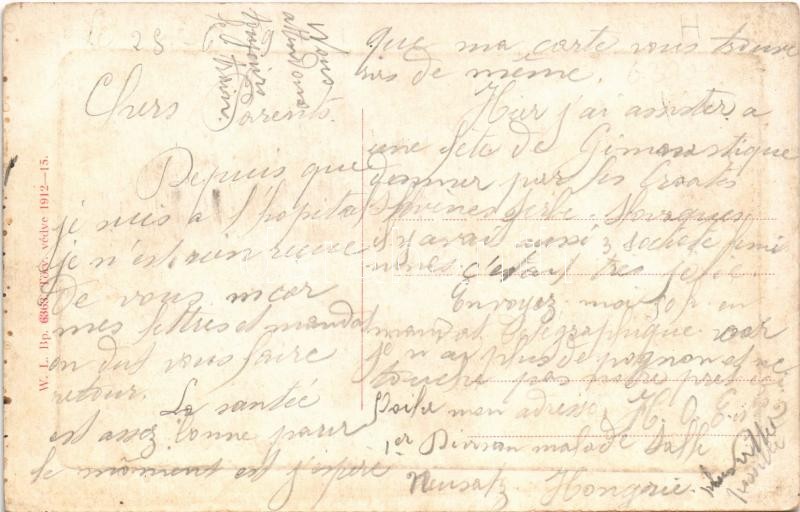 28
Chers Parents.
Depuis que
je suis a l'hopital
je n'est rien reçue
de vous m car
mes lettres et mandat
on dut vous faire
retour.
La santée
est assez bonne pour
le moment est j'espère
que ma carte vous trouve
de même.
Hier j'ai assister a
une fête de Gimnastique
donner par les Croates
Slovenes serbe.
il y avait aussi 2 societe femi
nines c'était tres jolie.
Envoyez moi en
mandat telegraphique car
je n'ai plus de pognon et ne
touche pas notre pret ici
Voila mon adresse, H. O. E.
1er Division malade Salle
Neusatz. Hongrie.
Nous
attendons
toujours
le train.
plus vite
possible
W. L. Bp. 6368. Törv. védve 1912—15.